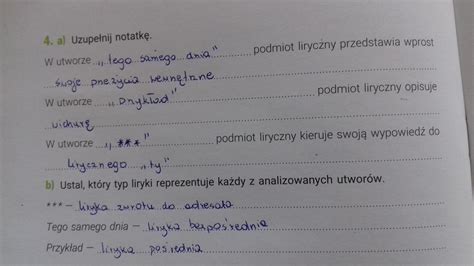 4. a) Uzupełnij notatkę.
W utworze „tego samego dnia" podmiot liryczny przedstawia wprost
swoje przeżycia wewnętrzne
W utworze „Przykład" podmiot liryczny opisuje
wichurę
W utworze „***" podmiot liryczny kieruje swoją wypowiedź do
lirycznego „ty"
b) Ustal, który typ liryki reprezentuje każdy z analizowanych utworów.
*** – liryka zwrotu do adresata
Tego samego dnia – liryka bezpośrednia
Przykład – liryka pośrednia